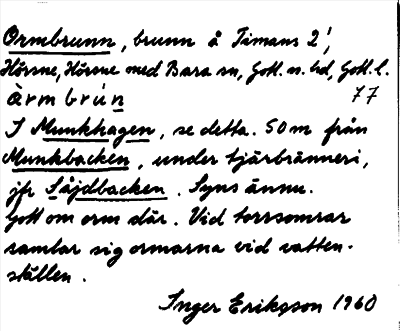 Ormbrunn, brunn å Timans 2¹,
Hörsne, Hörsne med Bara sn, Gotl. n. hd, Gotl. l.
àrm brún 77
I Munkhagen, se detta. 50 m från
Munkbacken, under tjärbränneri,
jfr Såjdbacken. Syns ännu.
Gott om orm där. Vid torrsomrar
samlar sig ormarna vid vatten-
ställen.
Inger Erikgson 1960